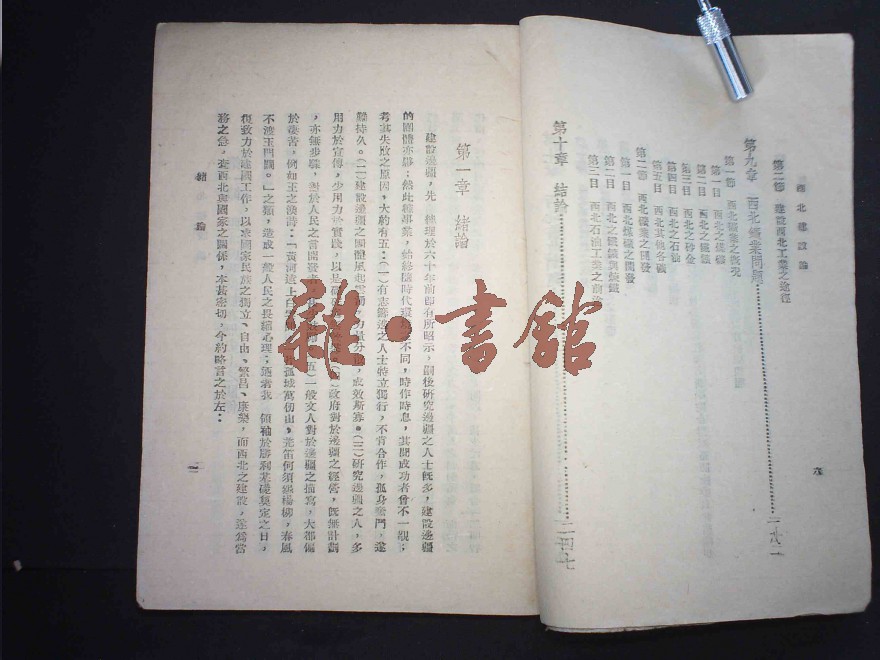 西北建設論
第二節　建設西北工業之途徑
第九章　西北鑛業問題
第一節　西北鑛業之概況
第一目　西北之煤鑛
第二目　西北之鐵鑛
第三目　西北之砂金
第四目　西北之石油
第五目　西北其他各礦
第二節　西北礦業之開發
第一目　西北煤礦之開發
第二目　西北之
第三目　西北石油工業之
第十章　結論
二四七
第一章　緒論
建設邊疆，先　總理於六十年前卽有所昭示，嗣後研究邊疆之人士旣多，建設邊疆
的團體亦夥；然此種事業，始終隨時代環境不同，時作時息，其間成功者曾不一覩；
考其失敗之原因，大約有五：（一）有志籌邊之人士特立獨行，不肯合作，孤身奮鬥，遂
難持久。（二）建設邊疆之團體風起雲湧，力量分散，成效斯寡。（三）研究邊疆之人，多
用力於宣傳，少用力於實踐，以是 政府對於邊疆之經營，旣無計劃
，亦無步驟，對於人民之 五）一般文人對於邊疆之描寫，大都偏
於淒苦，例如王之渙詩：「黃河遠上白 孤城萬仞山，羌笛何須怨楊柳，春風
不渡玉門關。」之類，造成一般人民之畏縮心理；迺者我　領袖於勝利基礎奠定之日，
復致力於建國工作，以求國家民族之獨立、自由、繁昌、康樂，而西北之建設，遂爲當
務之急，蓋西北與國家之關係，本甚密切，今約略言之於左：
緒　論
一
雜·書館